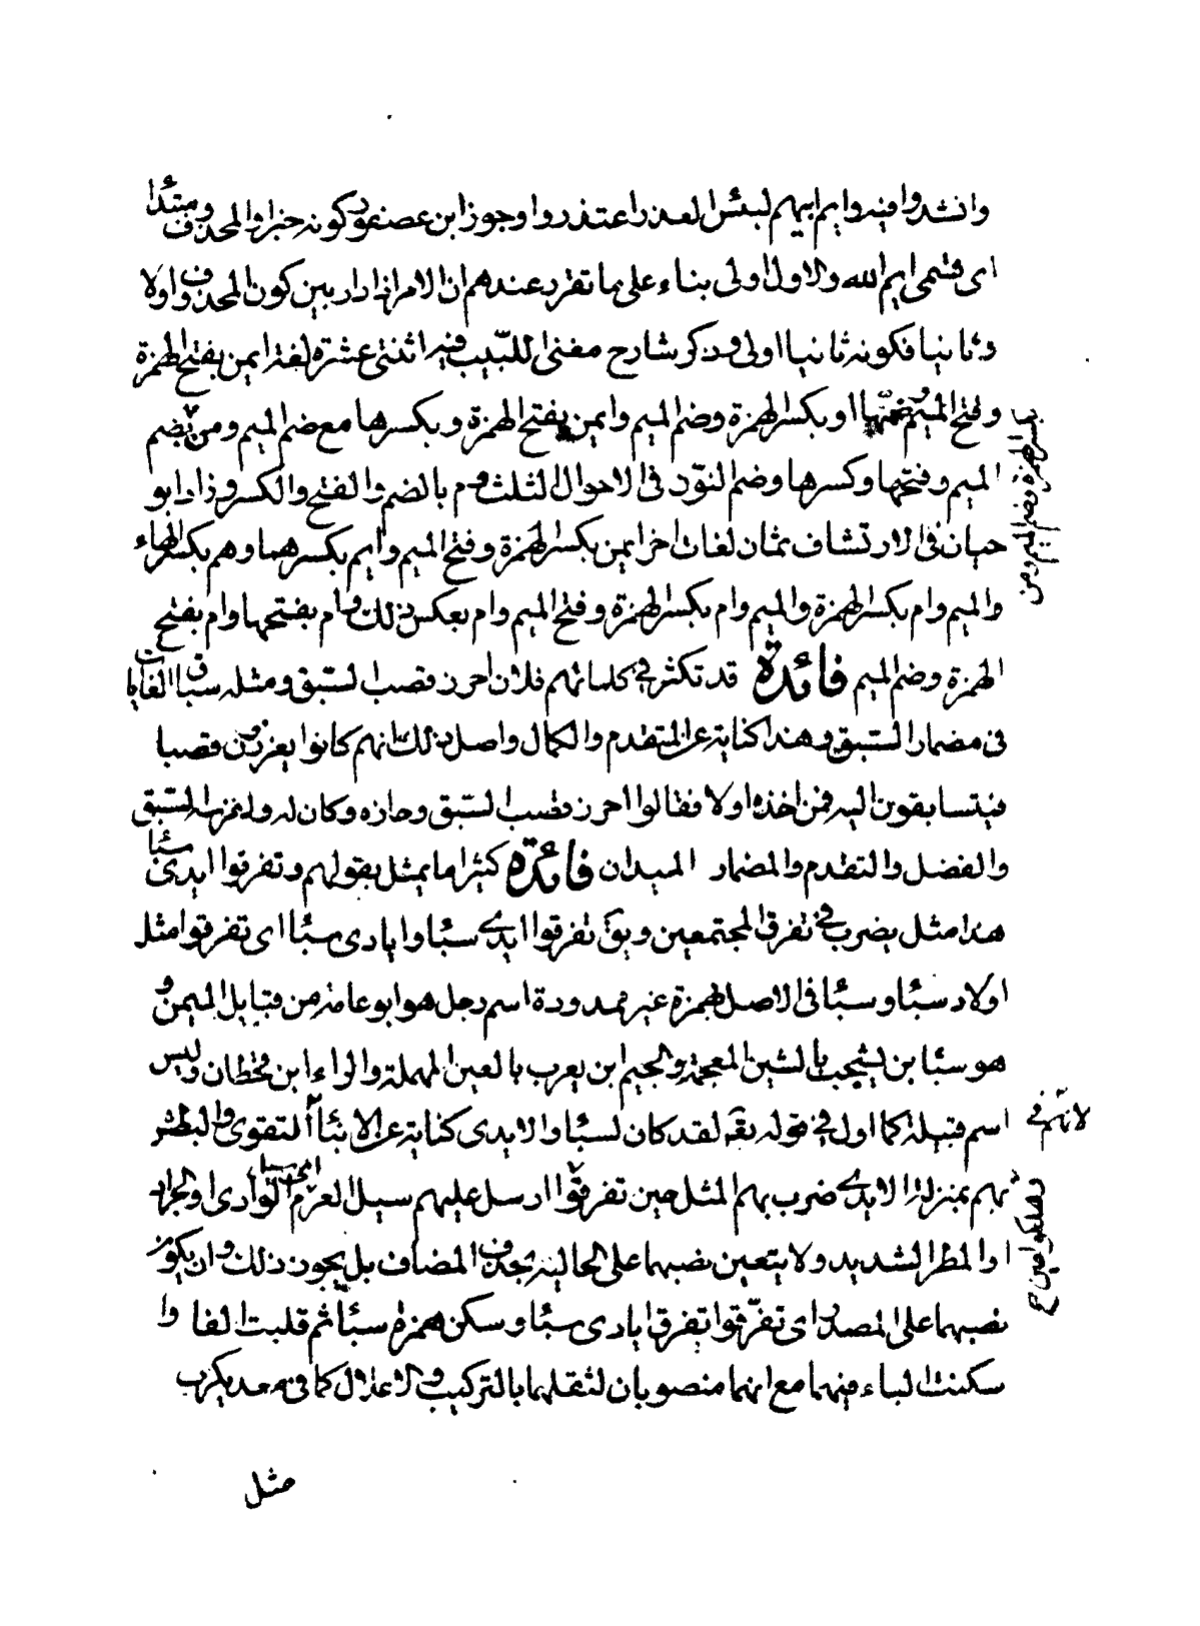 وانشدوا فيه وايم ابيهم لبئس العذر اعتذروا وجوز ابن عصفور كونه خبرا والمحذوف مبتدا
اى قسمى ايم الله والاول اولى بناء على ما تقرر عندهم ان الامر اذا دار بين كون المحذوف اولا
وثانيا فكونه ثانيا اولى وذكر شارح مغنى اللبيب فيه اثنتى عشرة لغة ايمن بفتح الهمزة
وفتح الميم وضمّها او بكسر الهمزة وضم الميم وايمن بفتح الهمزة وبكسرها مع ضم الميم ومن بضم
الميم وفتحها وكسرها وضم النون فى الاحوال الثلث وم بالضم والفتح والكسر وزاد ابو
حيان فى الارتشاف ثمان لغات اخر ايمن بكسر الهمزة وفتح الميم وايم بكسرهما وهم بكسر الهاء
والميم وام بكسر الهمزة والميم وام بكسر الهمزة وفتح الميم وام بعكس ذلك وام بفتحها وام بفتح
الهمزة وضم الميم فائدة قد تكثر فى كلماتهم فلان احرز قصب السّبق ومثله سباق الغايات
فى مضمار السّبق وهذا كناية عن المتقدم والكمال واصل ذلك انهم كانوا يغرزون قصبا
فيتسابقون اليه فمن اخذه اولا فقالوا احرز قصب السّبق وحازه وكان له ولمن السّبق
والفضل والتقدم والمضمار الميدان فائدة كثيرا ما يمثل بقولهم وتفرقوا ايدى سبأ
هذا مثل يضرب فى تفرق المجتمعين ويق تفرقوا ايدى سبأ وايادى سبأ اى تفرقوا مثل
اولاد سبأ وسبأ فى الاصل بهمزة غير ممدودة اسم رجل هو ابو عامة من قبايل اليمن و
هو سبأ بن يشجب بالشين المعجمة والجيم ابن يعرب بالعين المهملة والراء ابن قحطان وليس
اسم قبيلة كما اول فى قوله تعه لقد كان لسبأ والايدى كناية عن الابناء التقوى والبطش
بهم بمنزلة الايدى ضرب بهم المثل حين تفرقوا ارسل عليهم سيل العرم الوادى او الجراد
او المطر الشديد ولا يتعين نصبهما على الحالية بحذف المضاف بل يجوز ذلك وان يكون
نصبهما على المصدر اى تفرّقوا تفرق ايادى سبأ وسكن همزة سبأ ثم قلبت الفا وا
سكنت الياء منهما مع انهما منصوبان لثقلهما بالتركيب والاعلال كما فى معديكرب
مثل
بكسر الهمزة وضم الميم ومن
لانهم فى